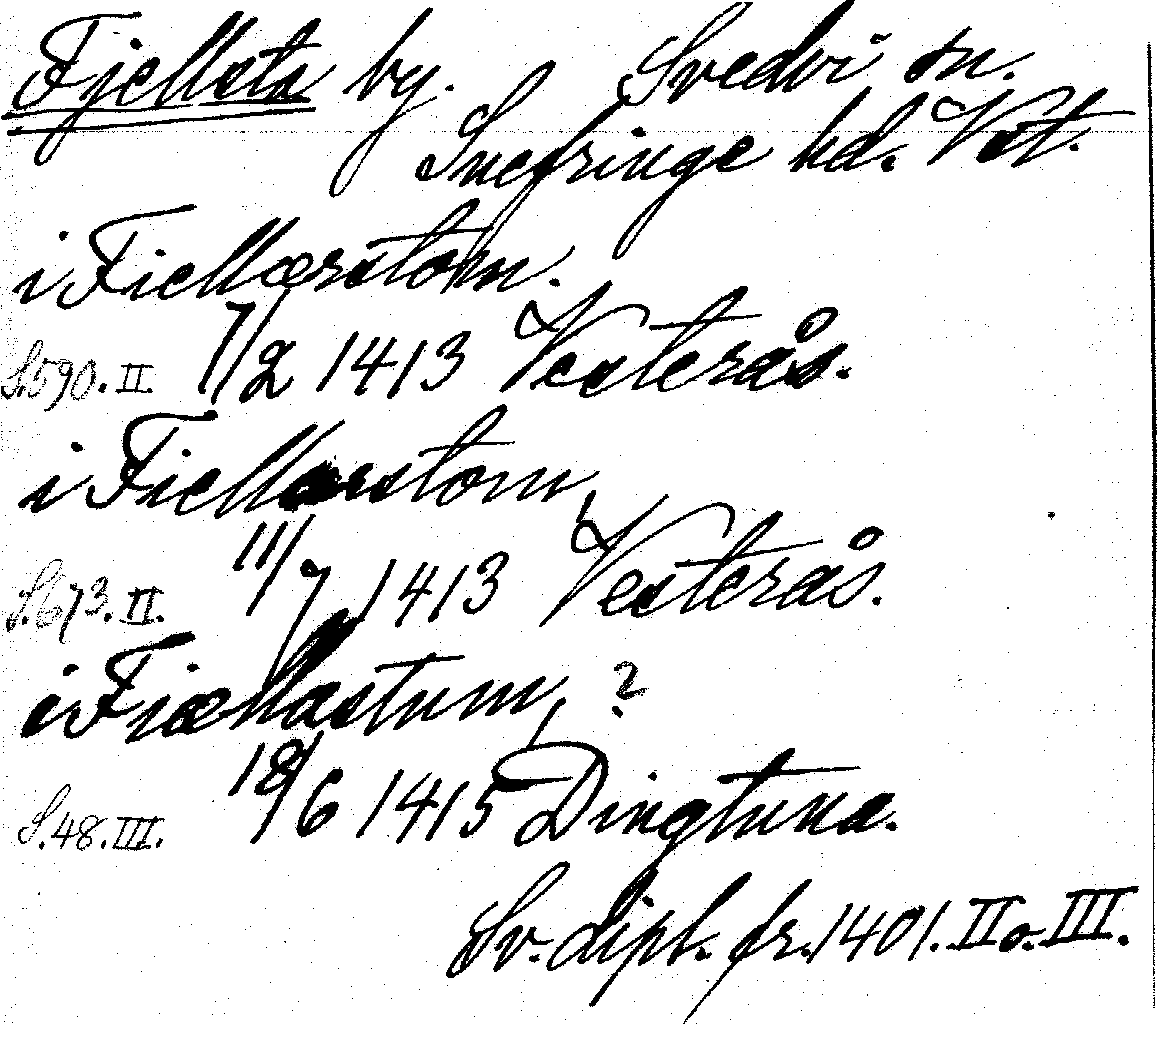 Fjellsta by. Svedvi sn.
Snefringe hd. Vst.
i Fiellærstom.
S.590.II. 7/2 1413 Vesterås.
i Fiellarstom,
S.673.II. 11/7 1413 Vesterås.
i Fiællastum, ?
S.48.III. 18/6 1415 Dingtuna.
Sv. dipl. fr. 1401. II o. III.